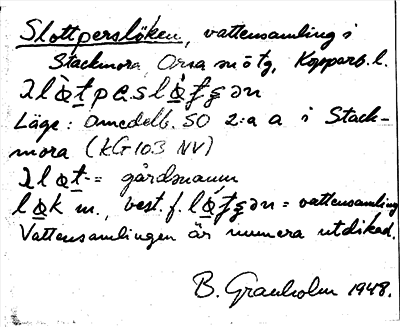 Slottpersløken, vattensamling i
Stackmora, Orsa sn ö tg, Kopparb. l.
Läge: Omedelb. SO 2:a a i Stack-
mora (KG 103 NV)
= gårdsnamn
m., best. f. = vattensamling
Vattensamlingen är numera utdikad.
B. Granholm 1948.